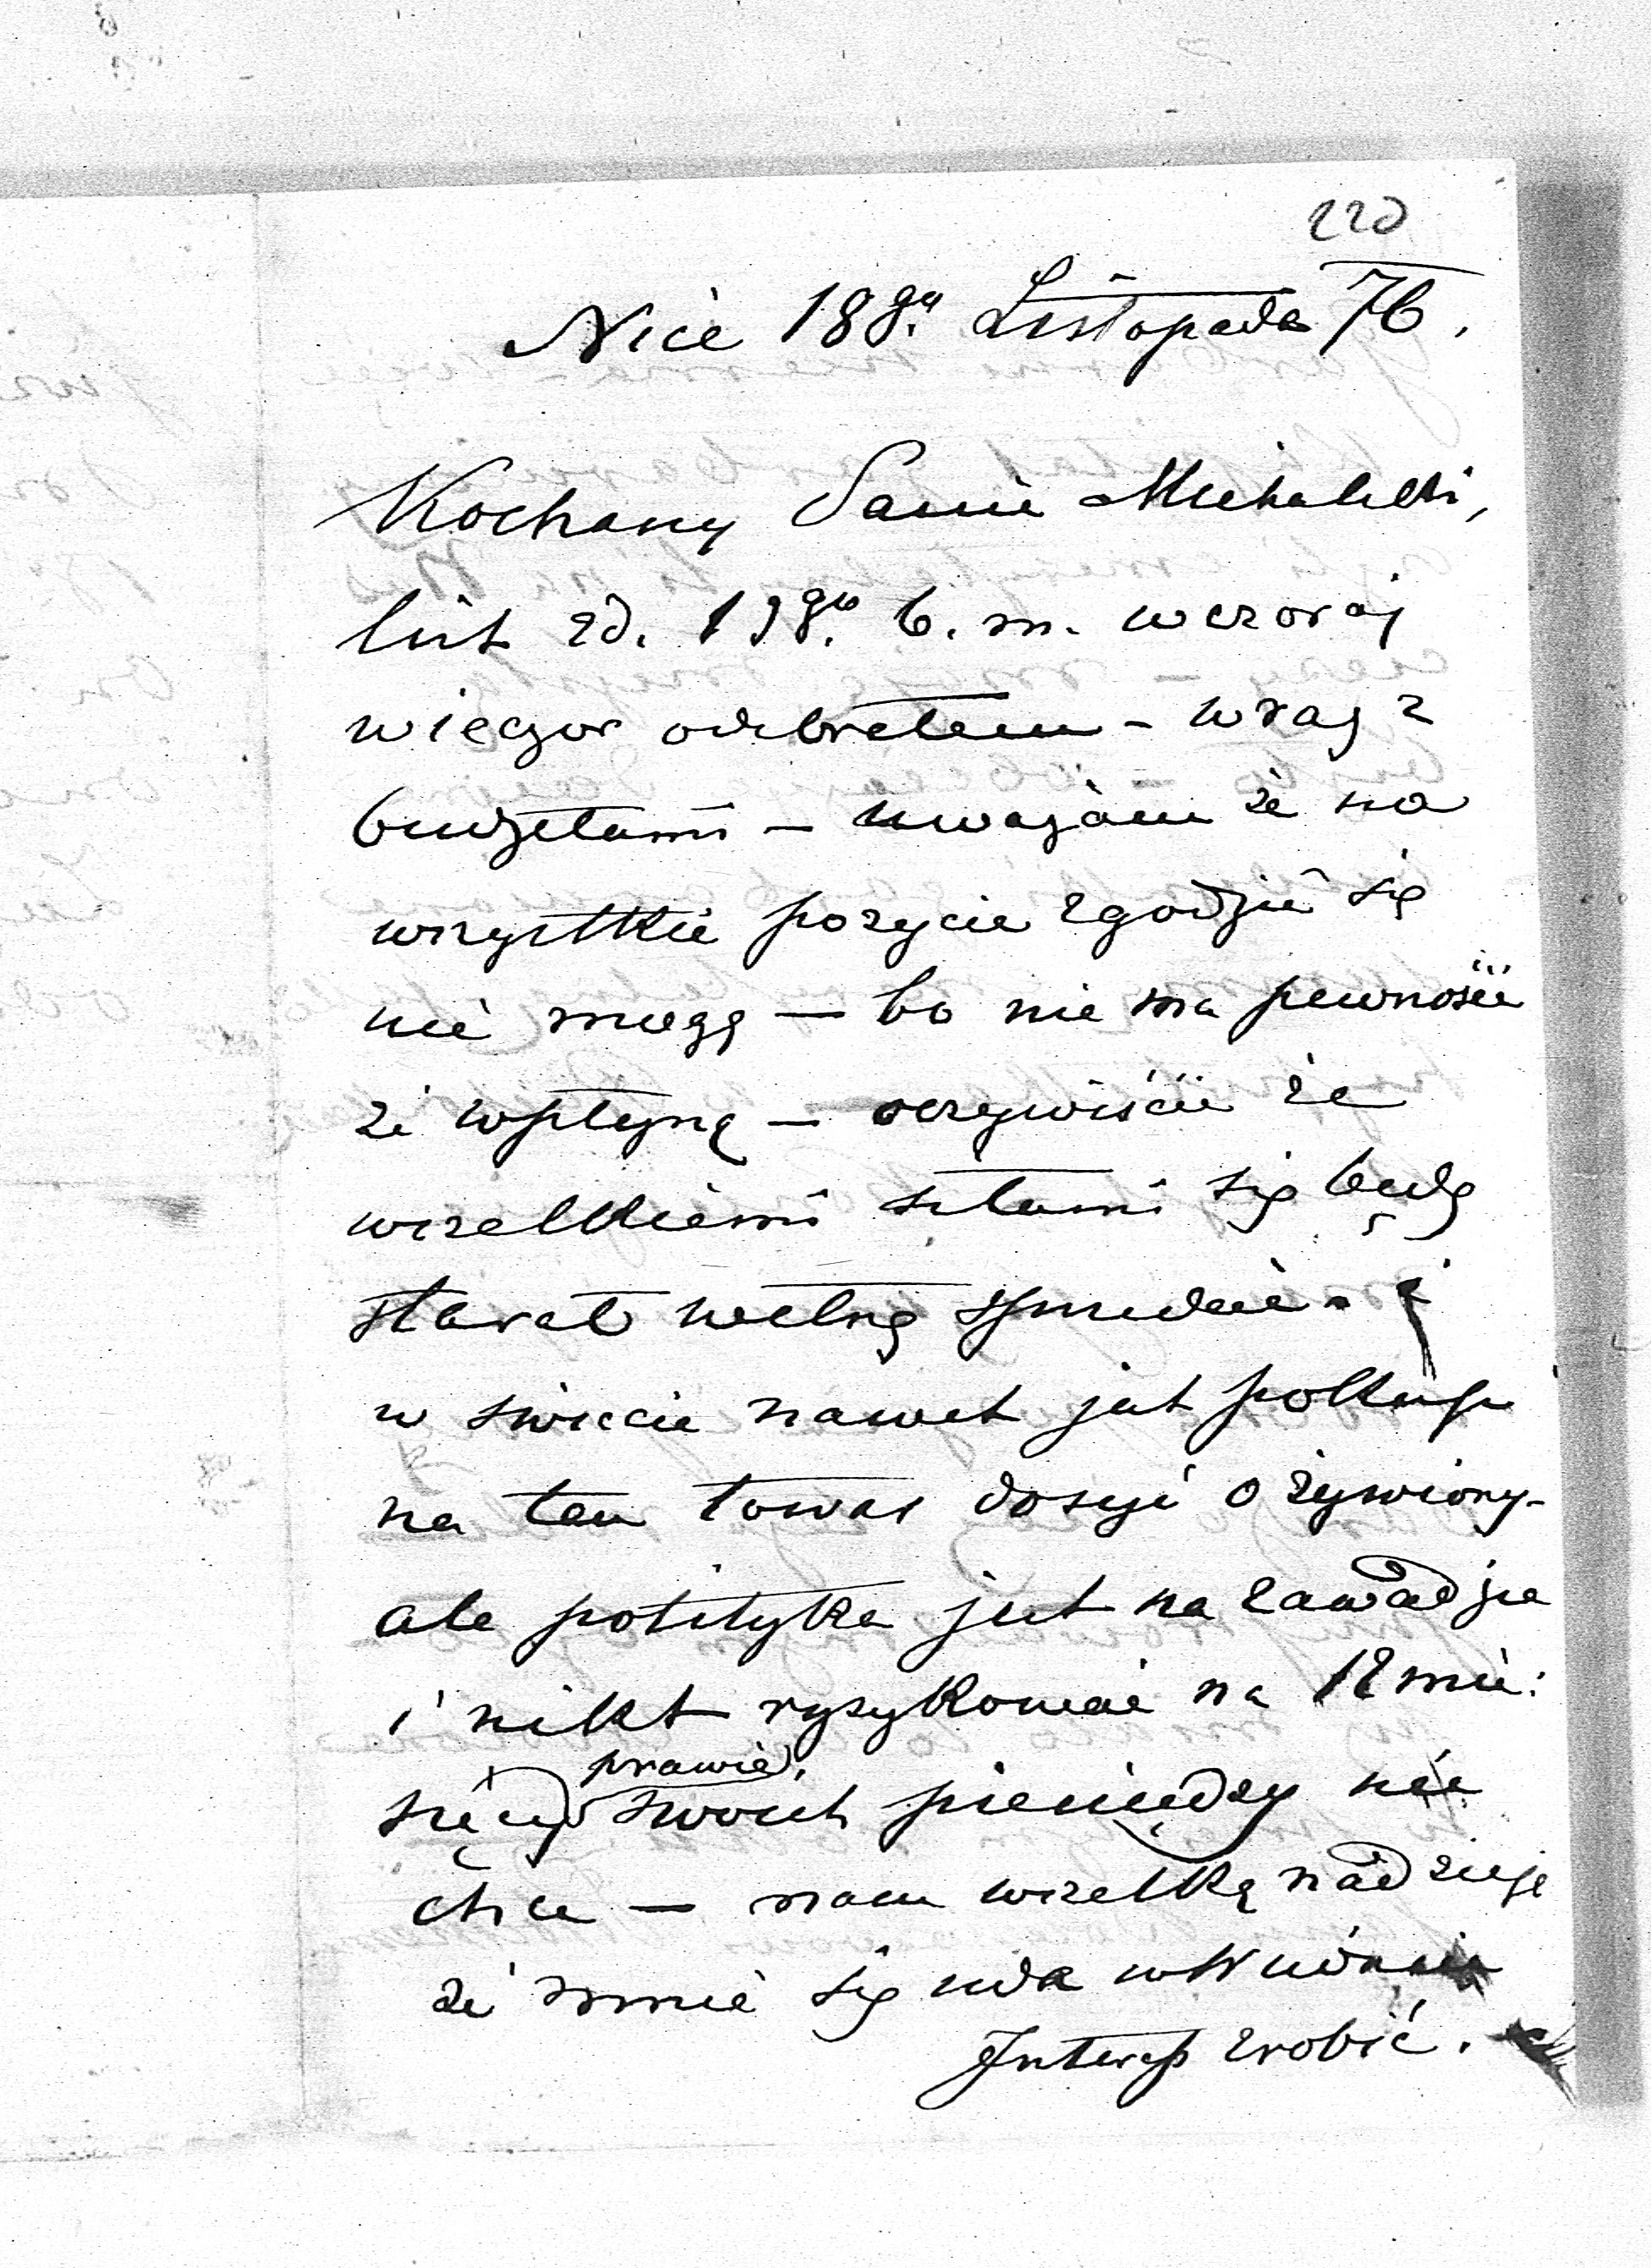 220
Nice 18go Listopada 76.
Kochany Panie Michalski,
list zd. 13go b. m. wczoraj
wieczor odebrałem - wraz z
budżetami - uwazam że na
wszystkie pozycie zgodzić się
nie mogę - bo nie ma pewności
że wpłyną - oczywiście że
wszelkiemi siłami się będę
starał wełnę spredać - i
w świecie nawet jest pokup
na ten towar dosyć ożywiony -
ale polityka jest na zawadzie
i nikt ryzykować na 12 mie:
sięcy prawie swoich pieniędzy nie
chce - mam wszelką nadzieję
że mnie się uda w Wiedniu
Interes zrobić.